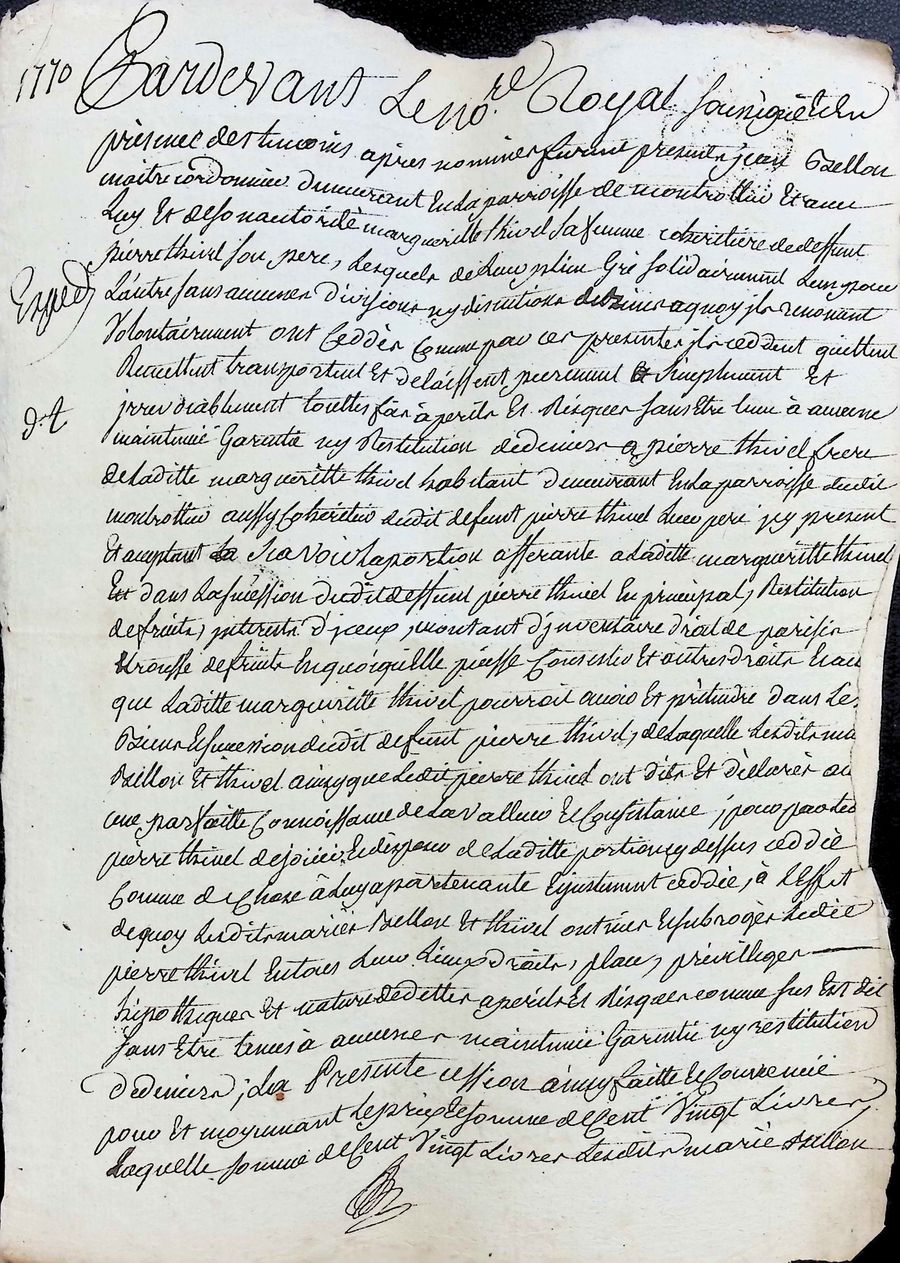 1770 Pardevant Le no.re Royal sousigné Et En
présence des temoins après nommés furent presents jean Bellon
maitre cordonnier demeurant En La parroisse de montrottier Et avec
Luy Et de son autorité margueritte thivel Sa femme cohéritiere de deffunt
pierre thivel son pere, Lesquels de Leur plein Gré solidairement L'un pour
Expedié
L'autre sans aucunes divisions ny discutions a quoy ils renoncent
Volontairement ont Ceddés Comme par ces presentes ils ceddent quittent
Remettent transportent Et délaissent purement Et Simplement Et
d. t
irrevocablement touttes fois à perils Et Risques sans Etre tenu à aucune
maintenüe Garantie ny Restitution de deniers a pierre thivel frere
de Laditte margueritte thivel habitant demeurant En La parroisse dudit
montrottier aussy Cohéritier dudit defunt pierre thivel Leur pere icy present
Et aceptant Scavoir La portion afferante a Laditte margueritte thivel
dans La sucession dudit deffunt pierre thivel En principal, Restitution
de fruits, interests d'iceux, montant d'inventaire droit de parisis
de fruits En quoi qu'elle puisse Consister Et autres droits
que Laditte margueritte thivel pourroit avoir Et prétendre dans Les
Biens Et sucession dudit defunt pierre thivel, de Laquelle Lesdits
Bellon Et thivel ainsy que Ledit pierre thivel ont dits Et déclarés
une parfaitte Connoissance de La Valleur Et Consistance, pour par Led
pierre thivel de joüir Et disposer de Laditte portion cy dessus ceddée
Comme de Chose à Luy apartenante Et justement ceddée, à L'Effet
de quoy Lesdits mariés Bellon Et thivel ont mis Et subrogés Ledit
pierre thivel En tous Leurs Lieux, droits, place, priviléges
hipothéques Et nature de dettes a périls Et Risques comme sus Est dit
sans Etre tenus à aucunes maintenüe Garantie ny restitution
de deniers; La Présente cession ainsy faitte Et Convenüe
pour Et moyennant Le prix Et somme de Cent Vingt Livres,
Laquelle somme de Cent Vingt Livres Lesdits mariés Bellon